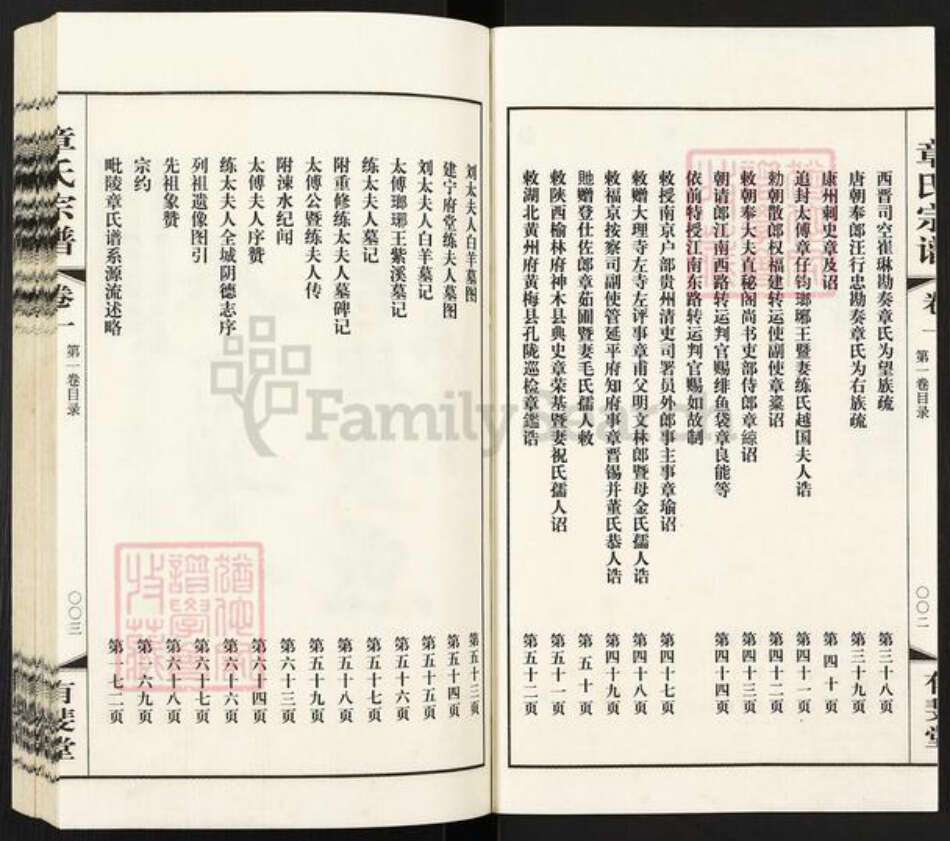 章氏宗谱
卷一
第一卷目录
〇〇二
有斐堂
西晋司空崔琳勘奏章氏为望族疏 第三十八页
唐朝奉郎汪行忠勘奏章氏为右族疏 第三十九页
康州刺史章及诏 第四十页
追封太傅章仔钧瑯琊王暨妻练氏越国夫人诰 第四十一页
勑朝散郎权福建转运使副使章楶诏 第四十二页
敕朝奉大夫直秘阁尚书吏部侍郎章綜诏 第四十三页
朝请郎江南西路转运判官赐绯鱼袋章良能等 第四十四页
依前特授江南东路转运判官赐如故制
敕授南京户部贵州清吏司署员外郎事主事章瑜诏 第四十七页
敕赠大理寺左寺左评事章甫父明文林郎暨母金氏孺人诰 第四十八页
敕福京按察司副使管延平府知府事章晋锡并董氏恭人诰 第四十九页
貤赠登仕佐郎章茹圃暨妻毛氏孺人敕 第五十页
敕陕西榆林府神木县典史章荣基暨妻祝氏孺人诏 第五十一页
敕湖北黄州府黄梅县孔陇巡检章鑑诰 第五十二页
刘太夫人白羊墓图 第五十三页
建宁府堂练夫人墓图 第五十四页
刘太夫人白羊墓记 第五十五页
太傅瑯琊王紫溪墓记 第五十六页
练太夫人墓记 第五十七页
附重修练太夫人墓碑记 第五十八页
太傅公暨练夫人传 第五十九页
附涑水纪闻 第六十三页
太傅夫人序赞 第六十四页
练太夫人全城阴德志序 第六十六页
列祖遗像图引 第六十七页
先祖象赞 第六十八页
宗约 第一六九页
毗陵章氏谱系源流述略 第一七二页
章氏宗谱
卷一
第一卷目录
〇〇三
有斐堂
FamilySearch